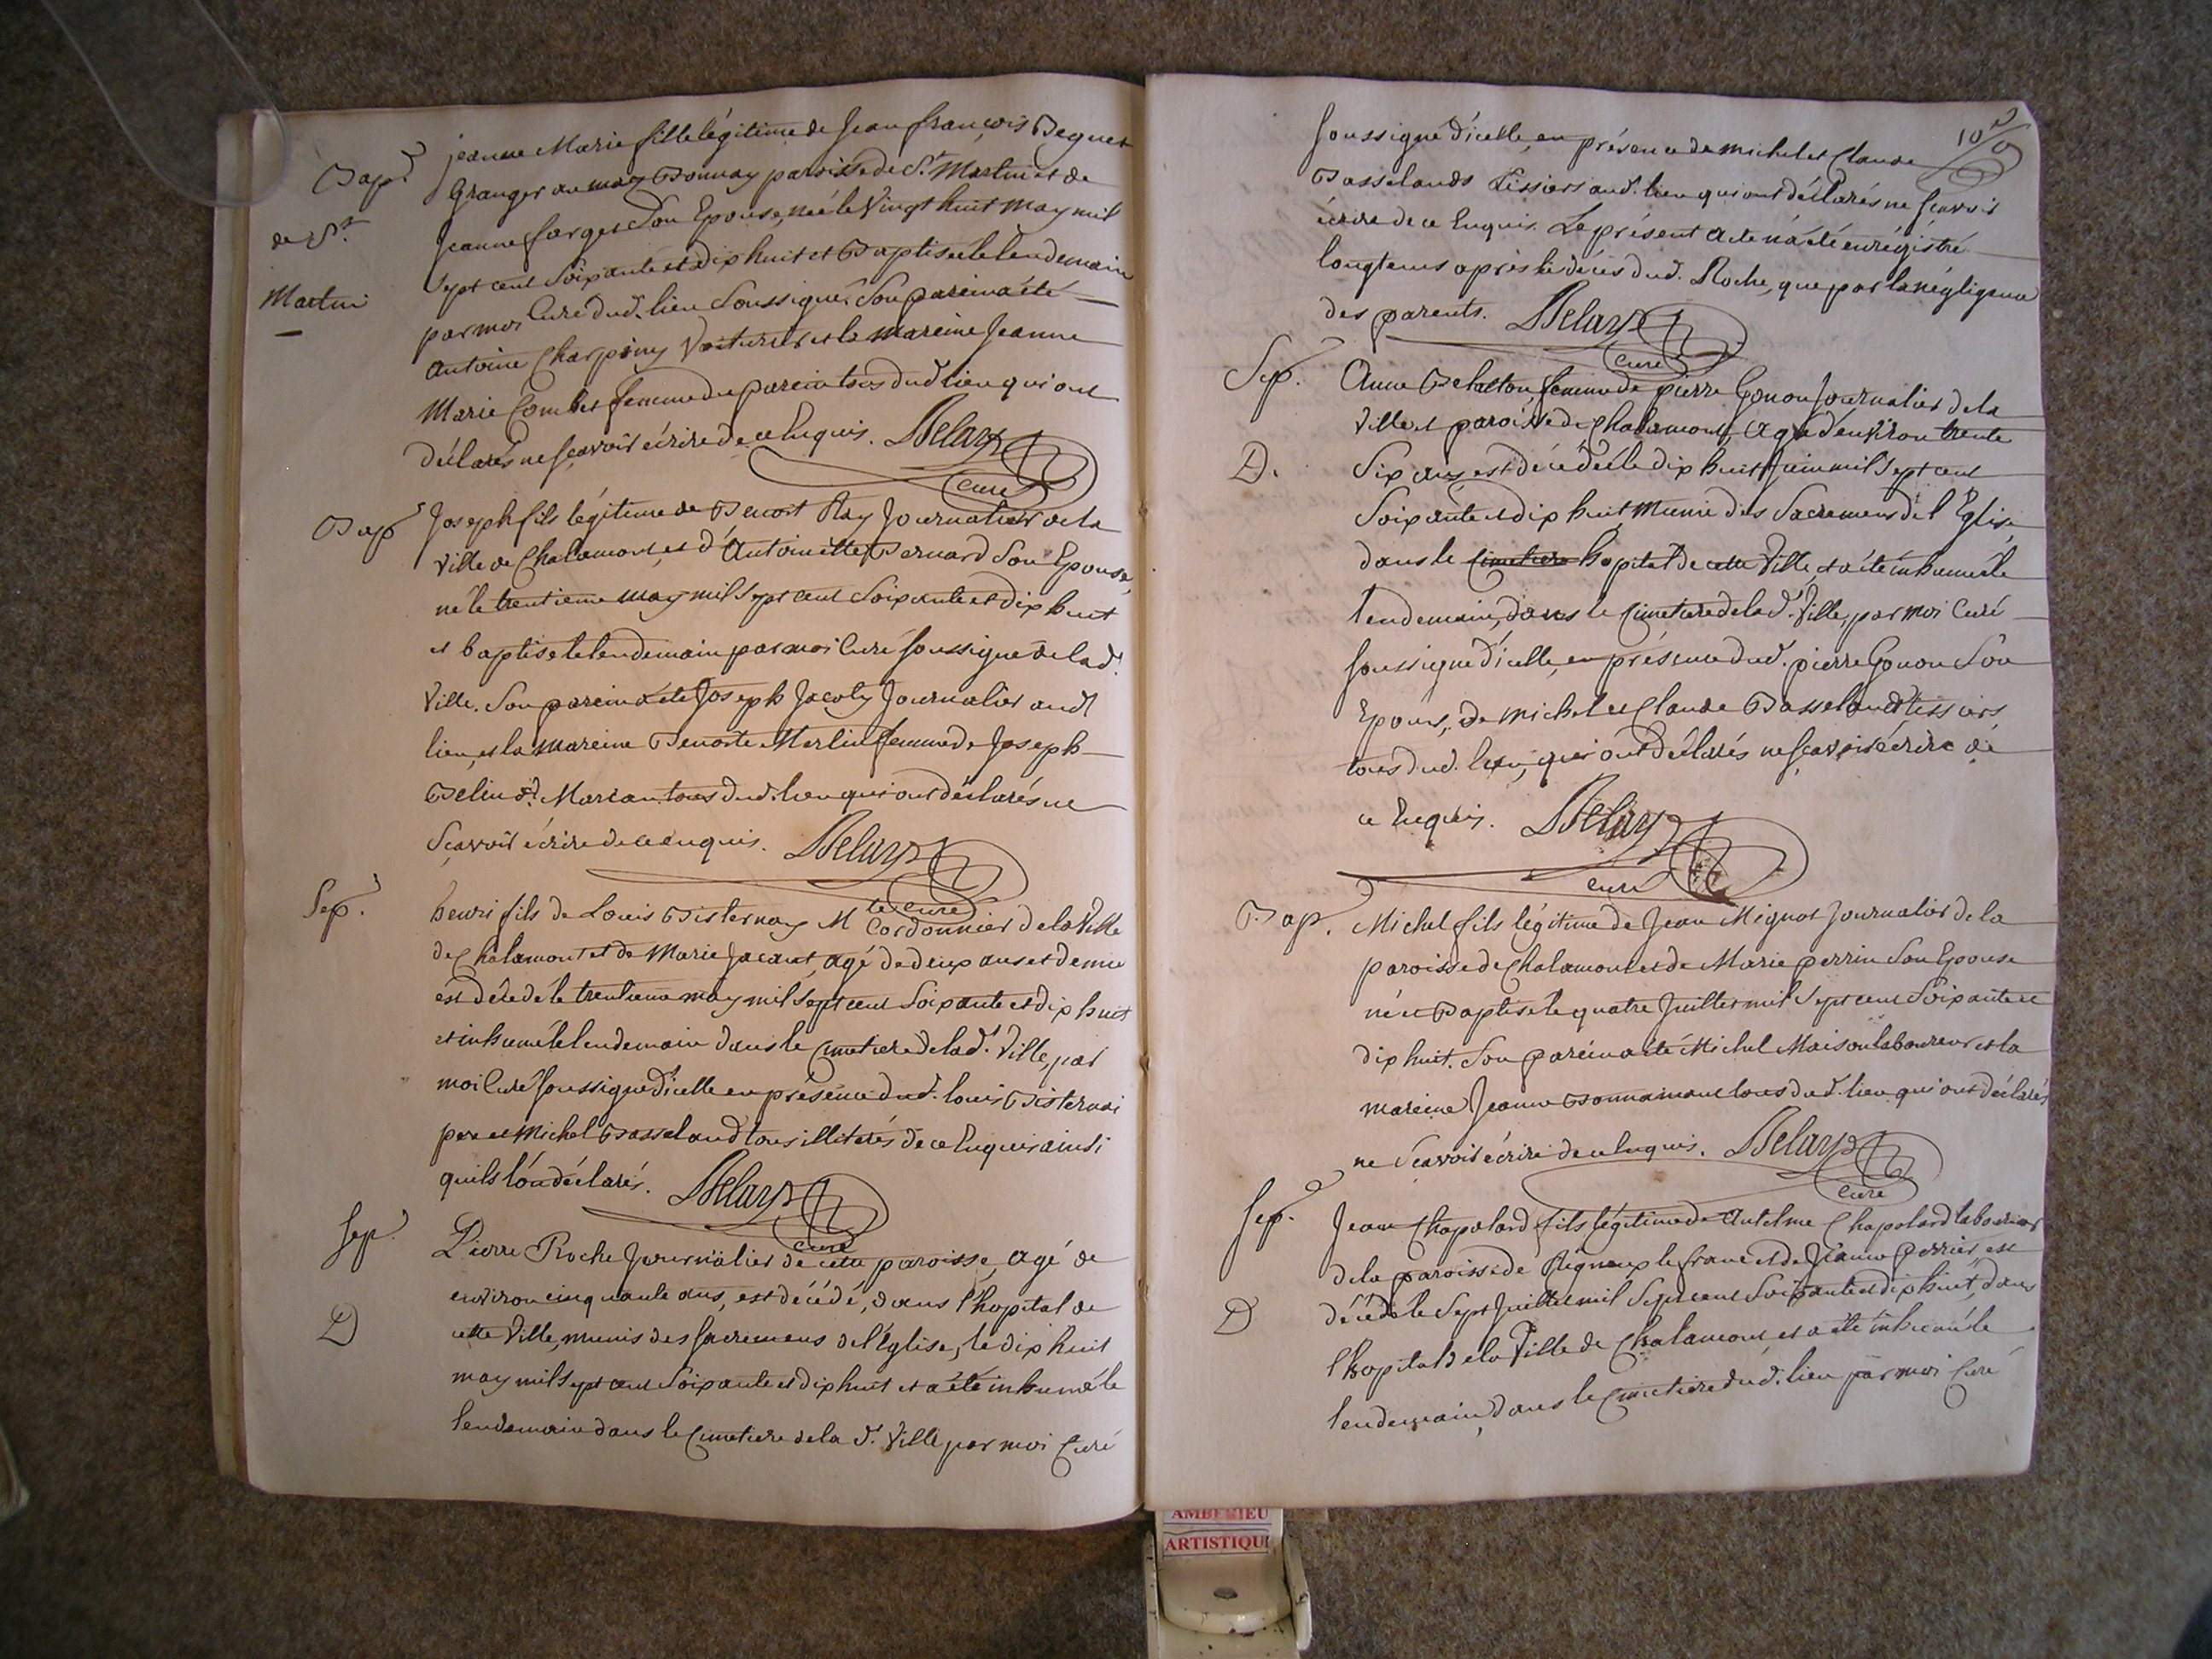 Bap.
de St.
Martin
jeanne Marie fille légitime de Jean françois
Granger au may Bonnay paroisse de St. Martin et de
Jeanne farget Son Epouse, née le Vingt huit may mil
Sept cent Soixante et dix huit et Baptisée le lendemain
par moi Curé dud. lieu Soussigné. Son parein a été
antoine Charpiny Voiturier et la mareine Jeanne
Marie Combet femme du parein tous dud lieu qui ont
déclarés ne sçavoir écrire de ce Enquis. Delary
curé
Bap
Joseph fils légitime de Benoit Ray Journalier de la
Ville de Chalamont, et d'Antoinette Bernard Son Epouse,
né le trentieme may mil Sept cent Soixante et dix huit
et baptisé le lendemain par moi Curé soussigné de lad.
Ville. Son parein a été Joseph Jacoty Journalier aud
lieu, et la mareine Benoite Merlin femme de Joseph
Belin dt. Marian tous dud. lieu qui ont déclarés ne
Sçavoir écrire de ce enquis. Delary
curé
Sep.
henri fils de Louis Bisternay Me Cordonnier de la Ville
de Chalamont et de Marie Jacant, agé de deux ans et demie
est décedé le trentieme may mil Sept cent Soixante et dix huit
et inhumé le lendemain dans le Cimetiere de lad. Ville, par
moi Curé soussigné d'icelle en présence dud. louis Bisternai
pere et Michel Basseland tous illiterés de ce Enquis ainsi
quils l'on déclarés. Delary
curé
Sep.
D
Pierre Roche Journalier de cette paroisse, agé de
environ cinquante ans, est décédé, dans l'hopital de
cette Ville, munis des sacremens de l'église, le dix huit
may mil Sept cent Soixante et dix huit et a été inhumé le
lendemain dans le Cimetiere de la d. Ville par moi Curé
10
soussigné d'icelle, en présence de michel et Claude
Basselands tissiers aud. lieu qui ont déclarés ne sçavoir
écrire de ce Enquis. Le présent acte n'a été enrégistré
longtems après le décès dud. Roche, que par la négligence
des parents. Delary
curé
Sep.
D.
Anne femme de pierre Gonon Journalier de la
Ville et paroisse de Chalamont, agée d'environ trente
Six ans est décédée le dix huit Juin mil Sept cent
Soixante et dix huit, munie des Sacremens de l'Eglise,
dans le Cimetiere hopital de cette Ville, et a été inhumée le
lendemain, dans le Cimetiere de lad. Ville, par moi Curé
soussigné d'icelle, en présence dud. pierre Gonon Son
Epoux, de michel et Claude Basseland tissiers
tous dud. lieu, qui ont déclarés ne sçavoir écrire de
ce Enquis. Delary
curé
Bap.
Michel fils légitime de Jean Mignot Journalier de la
paroisse de Chalamont et de Marie perrin Son Epouse
né et Baptisé le quatre Juillet mil Sept cent Soixante et
dix huit. Son parein a été Michel Maison laboureur et la
mareine Jeanne Bonnamour tous dud. lieu qui ont déclarés
ne Sçavoir écrire de ce Enquis. Delary
curé
Sep.
D
Jean Chapolard fils légitime de Antelme Chapolard laboureur
de la paroisse de Rigneux le franc et de Jeanne perrier, est
décédé le Sept Juillet mil Sept cent Soixante et dix huit, dans
l'hopital de la Ville de Chalamont, et a été inhumé le
lendemain, dans le Cimetiere dud. lieu par moi Curé
AMBERIEU
ARTISTIQU